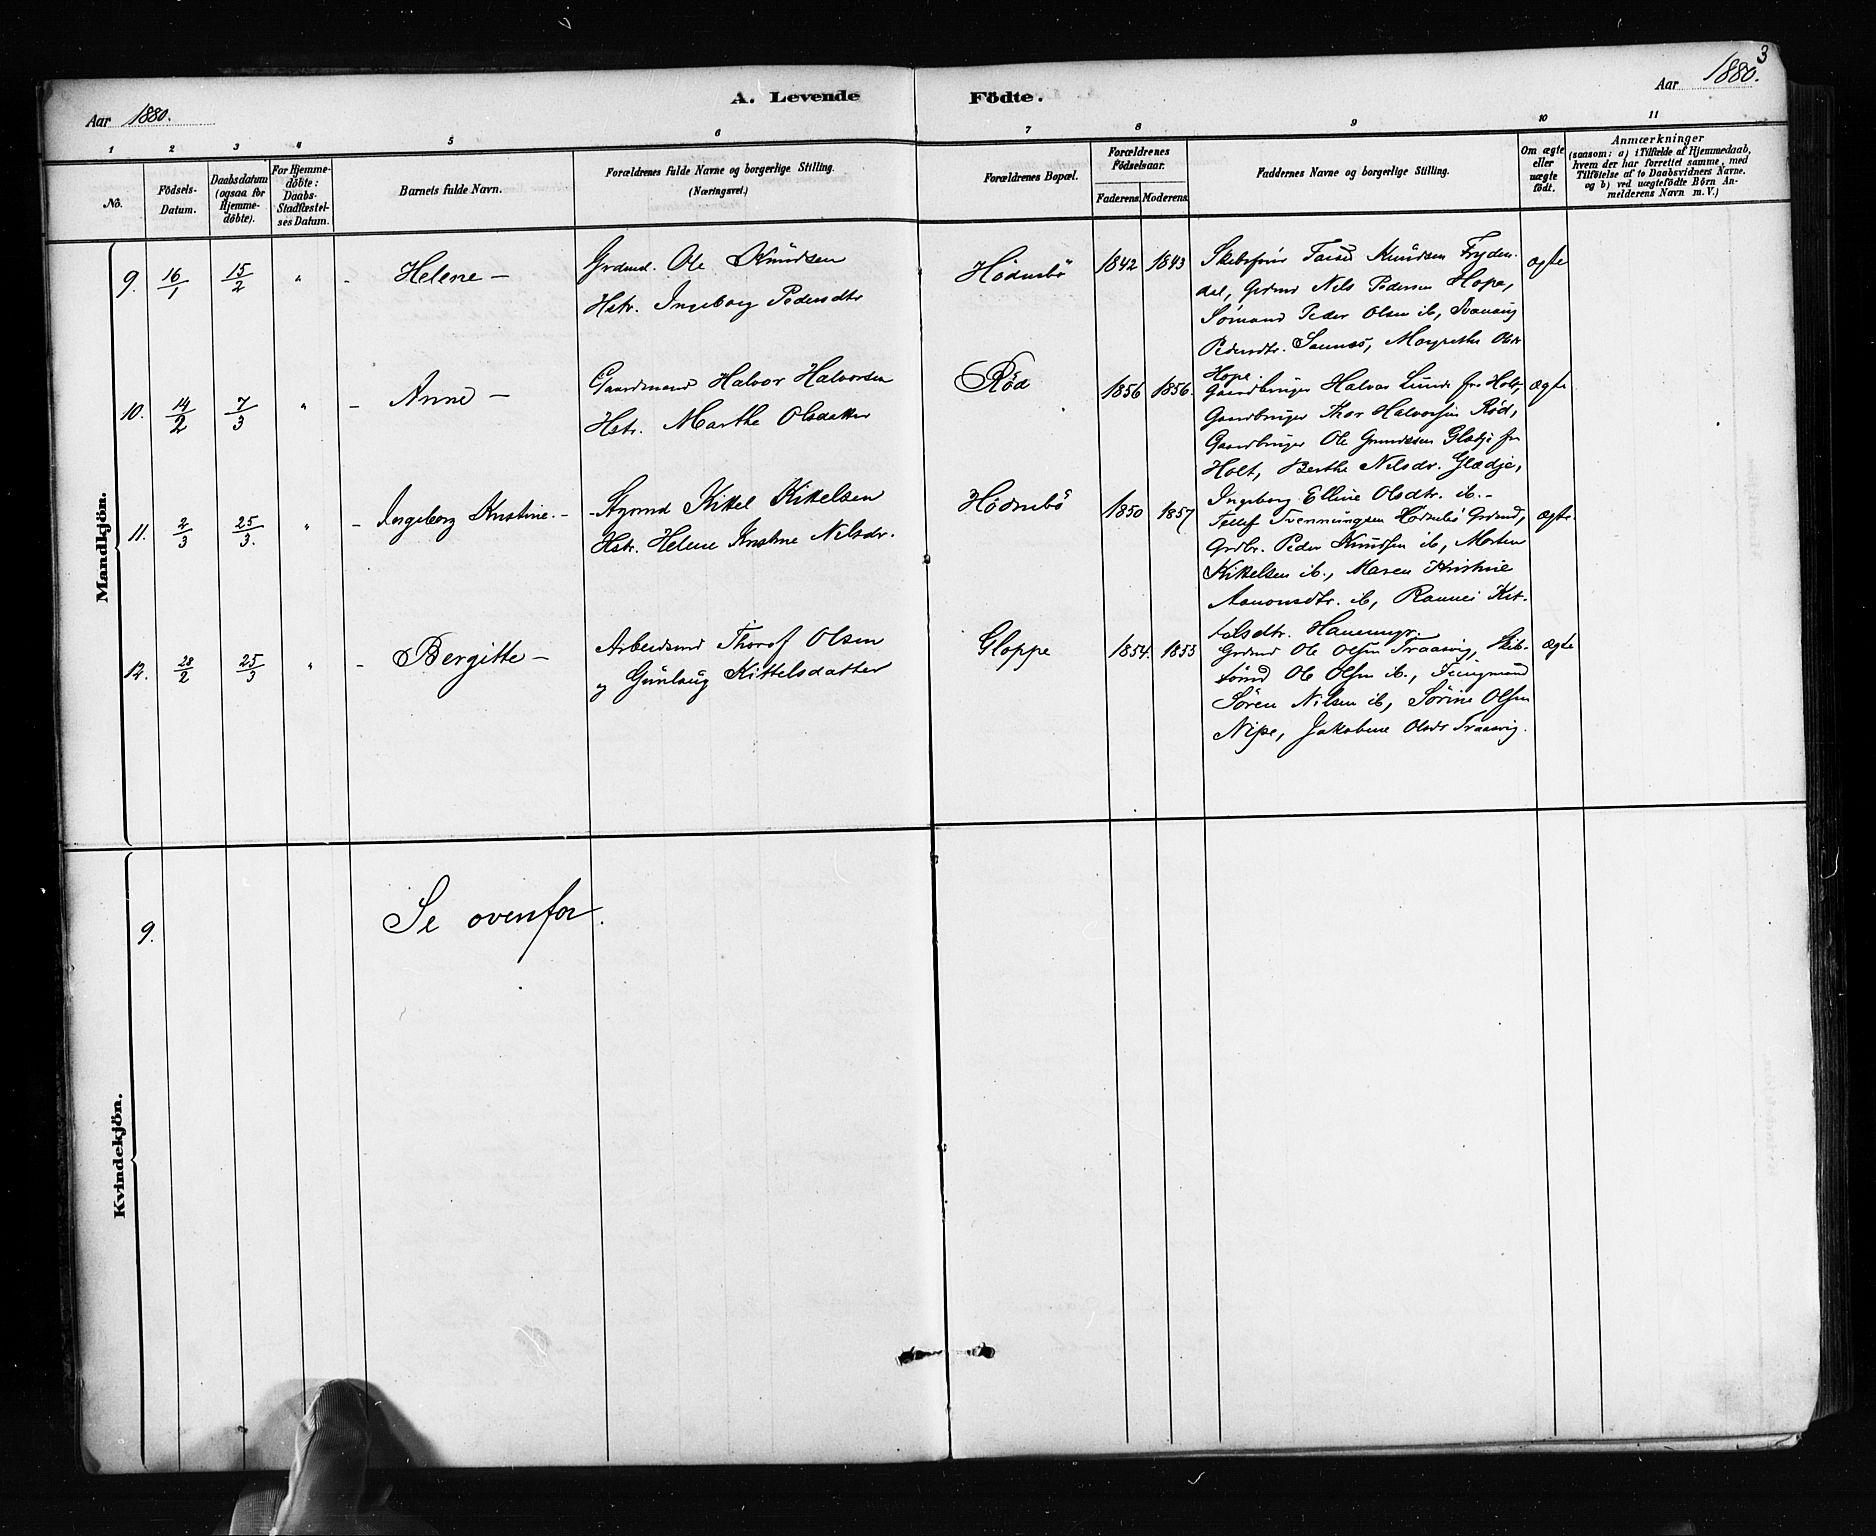 3
Aar 1880.
A. Levende Födte.
Aar 1880.
1 2 3 4 5 6 7 8 9 10 11
No.
Födsels-
Datum.
Daabsdatum
(ogsaa for
Hjemme-
döbte).
For Hjemme-
döbte:
Daabs-
Stadfæstel-
ses Datum.
Barnets fulde Navn.
Forældrenes fulde Navne og borgerlige Stilling.
(Næringsvei.)
Forældrenes Bopæl.
Forældrenes
Födselsaar.
Faderens. Moderens.
Faddernes Navne og borgerlige Stilling.
Om ægte
eller
uægte
födt.
Anmærkninger
(saasom: a) i Tilfælde af Hjemmedaab,
hvem der har forrettet samme, med
Tilföielse af to Daabsvidners Navne.
og b) ved uægtefödte Börn An-
melderens Navn m. V.)
Mandkjön.
9. 16/1 15/2 " - Helene -
Grdmd. Ole Knudsen
Hstr. Ingeborg Pedersdtr
Hödnebö 1842 1843
Skibsförer Knudsen Fryden-
dal, Grdmd Nils Pedersen Hope,
Sömand Peder Olsen ib,
Pedersdtr. Margrethe Olsdr
Hope.
ægte
10. 14/2 7/3 " - Anne -
Gaardmand Halvor Halvorsen
Hstr. Marthe Olsdatter
Röd 1856 1856.
Gaardbruger Halvor Lunde fra Holt,
Gaardbruger Thor Halvorsen Röd,
Gaardbruger Ole Gundersen Glædje fra
Holt, Berthe Nilsdr. Glædje,
Ingeborg Elline Olsdtr. ib. -
ægte
11. 2/3 25/3. " - Ingeborg Kristine. -
- Kittel Kittelsen
Hstr. Helene Kristine Nilsdr.
Hödnebö 1850 1857
Tellef Tvenningsen Hödnebö Grdmd,
Grdbr. Peder Knudsen ib, Morten
Kittelsen ib., Maren Kristine
Aanonsdtr. ib, Rannei Kit-
telsdtr. Hanemyr.
ægte.
12. 28/2 25/3 " - Bergitte -
Arbeidsmd Thorof Olsen
og Gunlaug Kittelsdatter
Gloppe 1854. 1853
Grdmd Ole Olsen Traavig, Skib-
Ole Olsen ib.,
Sören Nilsen ib, Sörine Olsen
Nipe, Jakobine Olsdr Traavig.
ægte
Kvindekjön.
9. Se ovenfor.